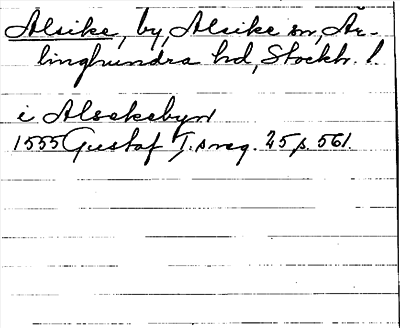 Alsike, by, Alsike sn, Är-
linghundra hd, Stockh. l.
i Alsekebyn
1555 Gustaf I:s reg. 25 s. 561.